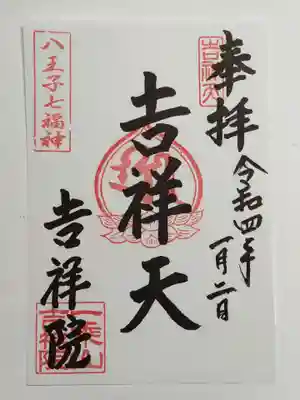 奉拝
令和四年
一月二日
吉祥天
八王子七福神
吉祥院